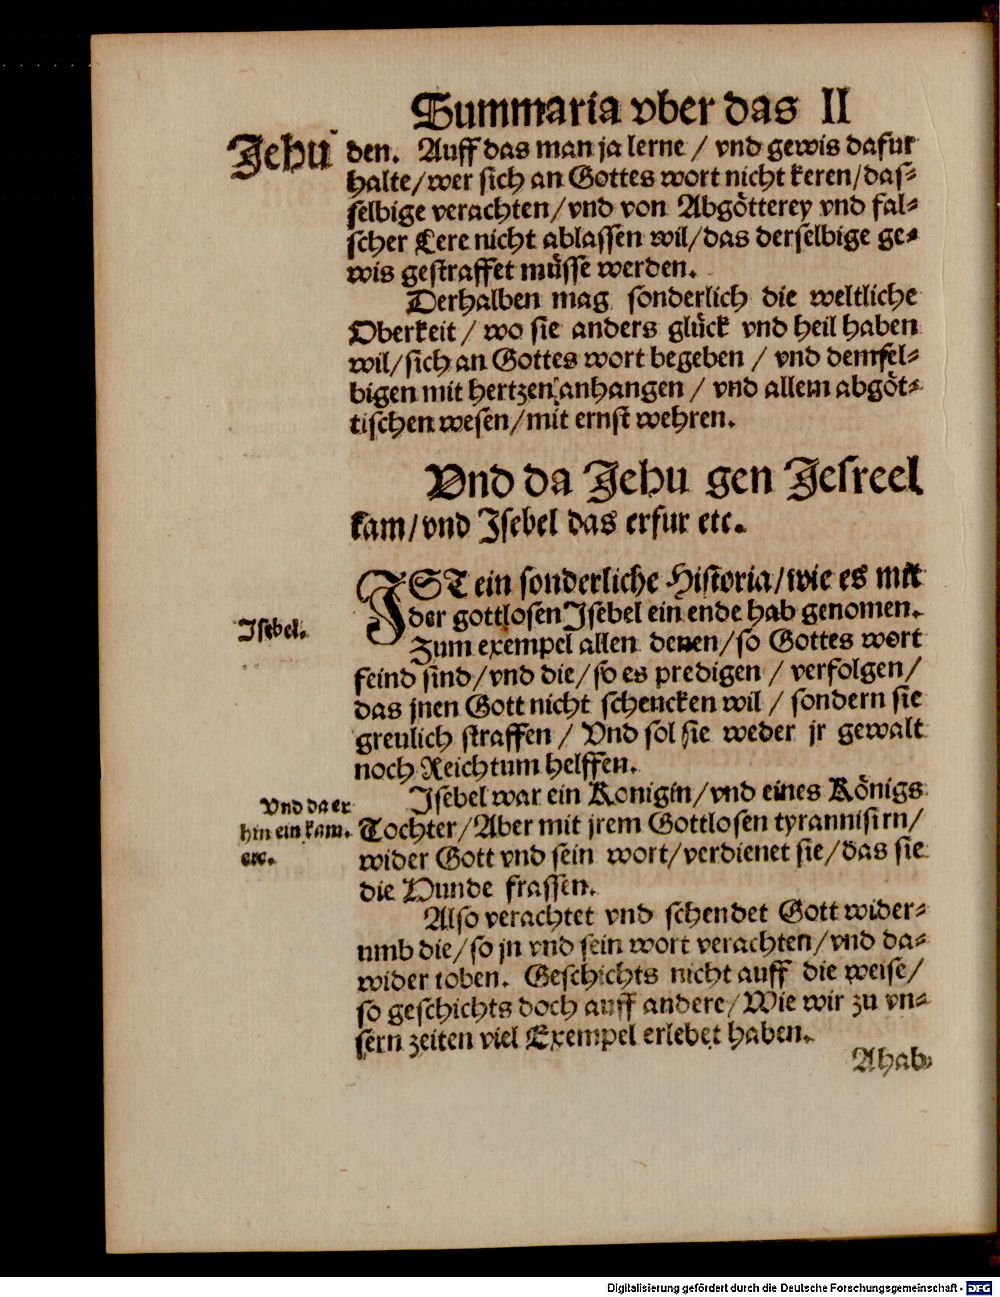 Summaria vber das II
Jehu
den. Auff das man ja lerne / vnd gewis dafur
halte/wer sich an Gottes wort nicht keren/das⸗
selbige verachten/vnd von Abgötterey vnd fal⸗
scher Lere nicht ablassen wil/das derselbige ge⸗
wis gestraffet müsse werden.
Derhalben mag sonderlich die weltliche
Oberkeit / wo sie anders glück vnd heil haben
wil/sich an Gottes wort begeben / vnd demsel⸗
bigen mit hertzen anhangen / vnd allem abgöt⸗
tischen wesen/mit ernst wehren.
Vnd da Jehu gen Jesreel
kam/vnd Jsebel das erfur etc.
JST ein sonderliche Historia/wie es mit
der gottlosen Jsebel ein ende hab genomen.
Jsebel.
Zum exempel allen denen/so Gottes wort
feind sind/vnd die/so es predigen / verfolgen/
das jnen Gott nicht schencken wil / sondern sie
greulich straffen / Vnd sol sie weder jr gewalt
noch Reichtum helffen.
Vnd da er
hin ein kam.
etc.
Jsebel war ein Konigin/vnd eines Königs
Tochter/Aber mit jrem Gottlosen tyrannisirn/
wider Gott vnd sein wort/verdienet sie/das sie
die Hunde frassen.
Also verachtet vnd schendet Gott wider⸗
umb die/so jn vnd sein wort verachten/vnd da⸗
wider toben. Geschichts nicht auff die weise/
so geschichts doch auff andere/Wie wir zu vn⸗
sern zeiten viel Exempel erlebet haben.
Ahab
Digitalisierung gefördert durch die Deutsche Forschungsgemeinschaft - DFG